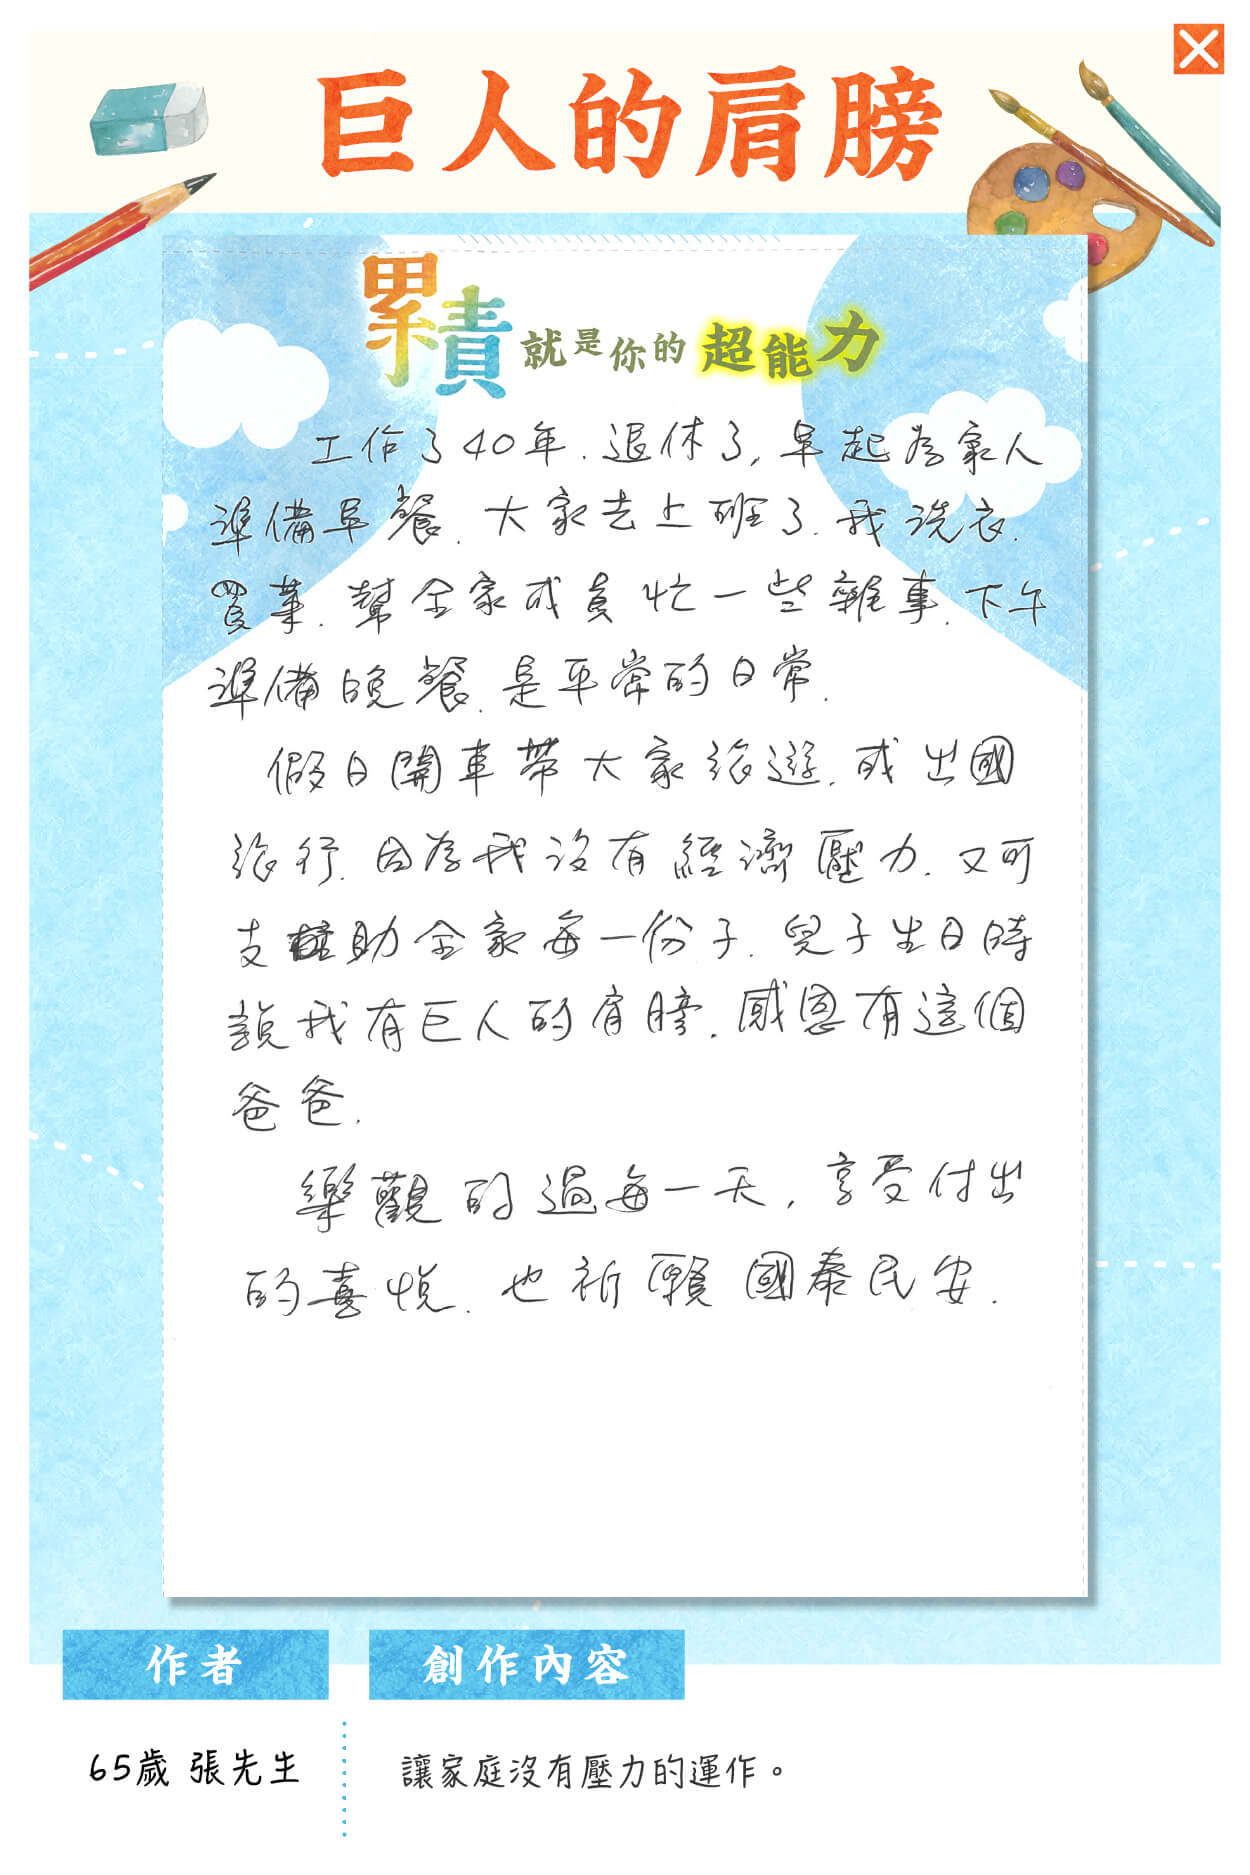 巨人的肩膀
累責就是你的超能力
工作了40年.退休了,早起為家人
準備早餐.大家去上班了.我洗衣.
買菜.幫全家成員忙一些雜事.下午
準備晚餐.是平常的日常.
假日開車帶大家旅遊.或出國
旅行.因為我沒有經濟壓力.又可
支助全家每一份子.兒子生日時
說我有巨人的肩膀.感恩有這個
爸爸.
樂觀的過每一天,享受付出
的喜悅.也祈願國泰民安.
作者
創作內容
65歲 張先生
讓家庭沒有壓力的運作。